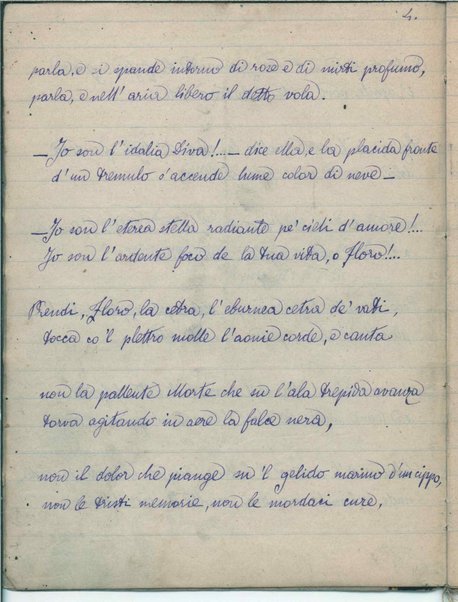 4.
parla, e si spande intorno di rose e di mirti profumo,
parla, e nell'aria libero il detto vola.
— Io son l'idalia Diva!... — dice Ella, e la placida fronte
d'un tremulo s'accende lume color di neve —
— Io son l'eterea stella radiante pe' cieli d'amore!...
Io son l'ardente foco de la tua vita, o Floro!...
Prendi, Floro, la cetra, l'eburnea cetra de' vati,
tocca co 'l plettro molle l'aonie corde, e canta
non la pallente Morte che su l'ala trepida avanza
torva agitando in aere la falce nera,
non il dolor che piange su 'l gelido marmo d'un cippo,
non le tristi memorie, non le mordaci cure,